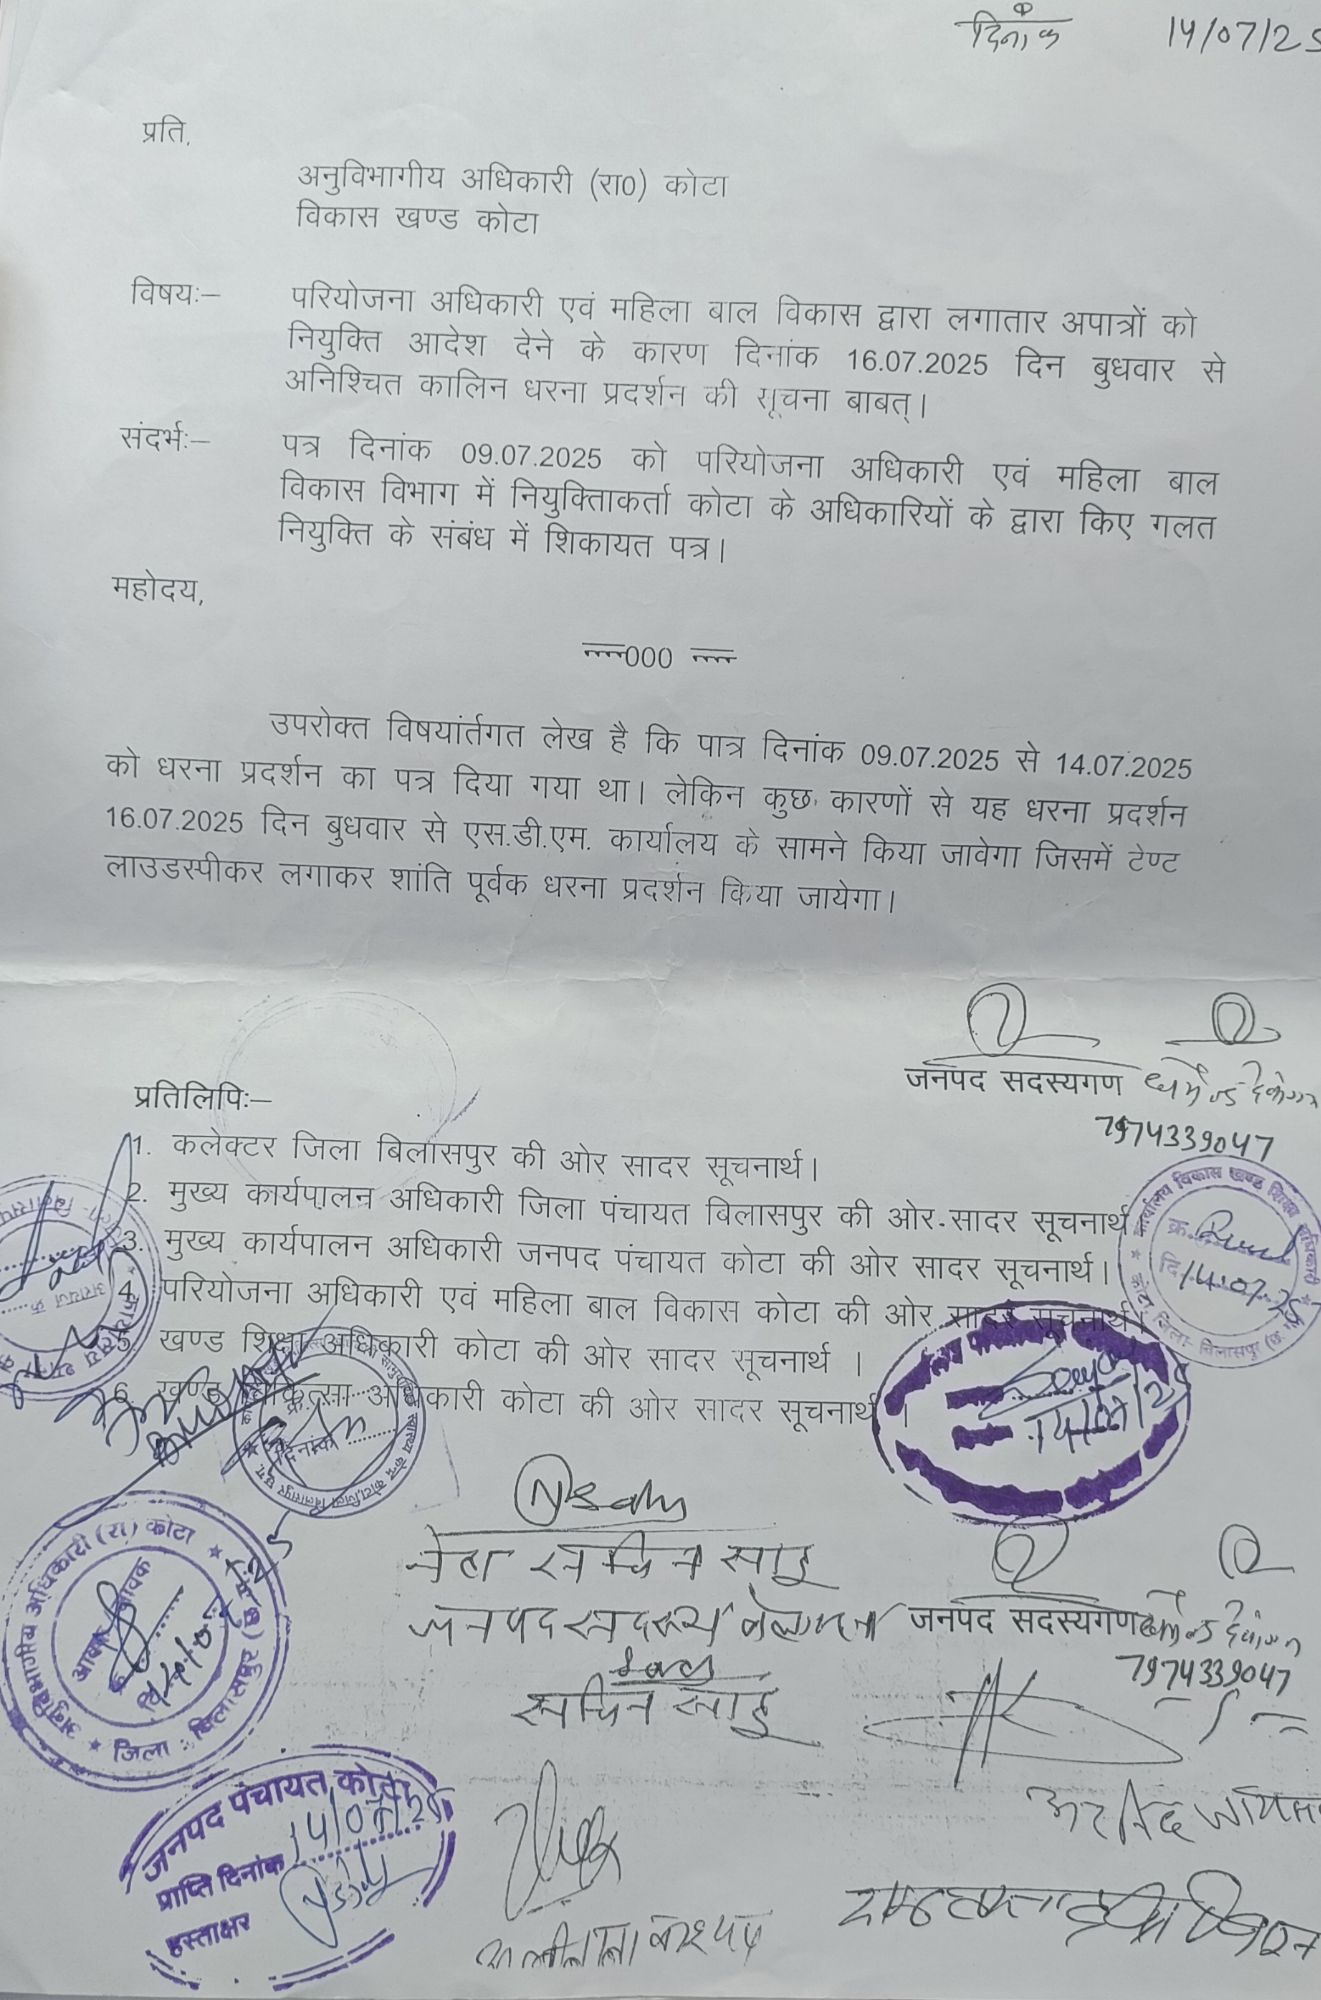 दिनांक 14/07/25
प्रति,
अनुविभागीय अधिकारी (रा0) कोटा
विकास खण्ड कोटा
विषयः— परियोजना अधिकारी एवं महिला बाल विकास द्वारा लगातार अपात्रों को
नियुक्ति आदेश देने के कारण दिनांक 16.07.2025 दिन बुधवार से
अनिश्चित कालिन धरना प्रदर्शन की सूचना बाबत्।
संदर्भः— पत्र दिनांक 09.07.2025 को परियोजना अधिकारी एवं महिला बाल
विकास विभाग में नियुक्तिाकर्ता कोटा के अधिकारियों के द्वारा किए गलत
नियुक्ति के संबंध में शिकायत पत्र।
महोदय,
000
उपरोक्त विषयांर्तगत लेख है कि पात्र दिनांक 09.07.2025 से 14.07.2025
को धरना प्रदर्शन का पत्र दिया गया था। लेकिन कुछ कारणों से यह धरना प्रदर्शन
16.07.2025 दिन बुधवार से एस.डी.एम. कार्यालय के सामने किया जावेगा जिसमें टेण्ट
लाउडस्पीकर लगाकर शांति पूर्वक धरना प्रदर्शन किया जायेगा।
जनपद सदस्यगण
7974339047
प्रतिलिपिः—
1. कलेक्टर जिला बिलासपुर की ओर सादर सूचनार्थ।
2. मुख्य कार्यपालन अधिकारी जिला पंचायत बिलासपुर की ओर सादर सूचनार्थ
3. मुख्य कार्यपालन अधिकारी जनपद पंचायत कोटा की ओर सादर सूचनार्थ।
4. परियोजना अधिकारी एवं महिला बाल विकास कोटा की ओर सादर सूचनार्थ।
खण्ड शिक्षा अधिकारी कोटा की ओर सादर सूचनार्थ ।
6. खण्ड चिकित्सा अधिकारी कोटा की ओर सादर सूचनार्थ ।
कार्यालय विकास खण्ड शिक्षा अधिकारी
क्र.
दि 14.07.25
कोटा, जिला- बिलासपुर (छ.ग.)
14/07/25
दिनांक
अनुविभागीय अधिकारी (रा) कोटा
आवक
जिला : बिलासपुर (छ.ग.)
सचिन साहू
जनपद सदस्य
जनपद सदस्यगण
7974339047
सचिन साहू
जनपद पंचायत कोटा
प्राप्ति दिनांक 14/07/25
हस्ताक्षर